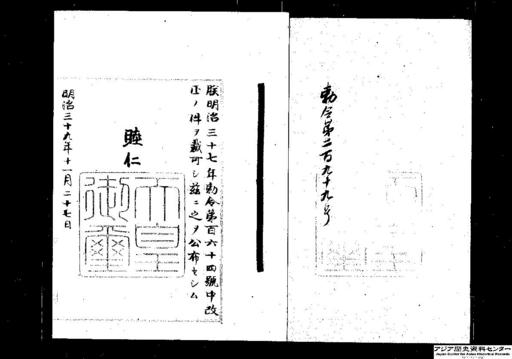 勅令第二百九十九号
朕明治三十七年勅令第百六十四號中改
正ノ件ヲ裁可シ茲ニ之ヲ公布セシム
睦仁
天皇
御璽
明治三十九年十一月二十七日
アジア歴史資料センター
Japan Center for Asian Historical Records